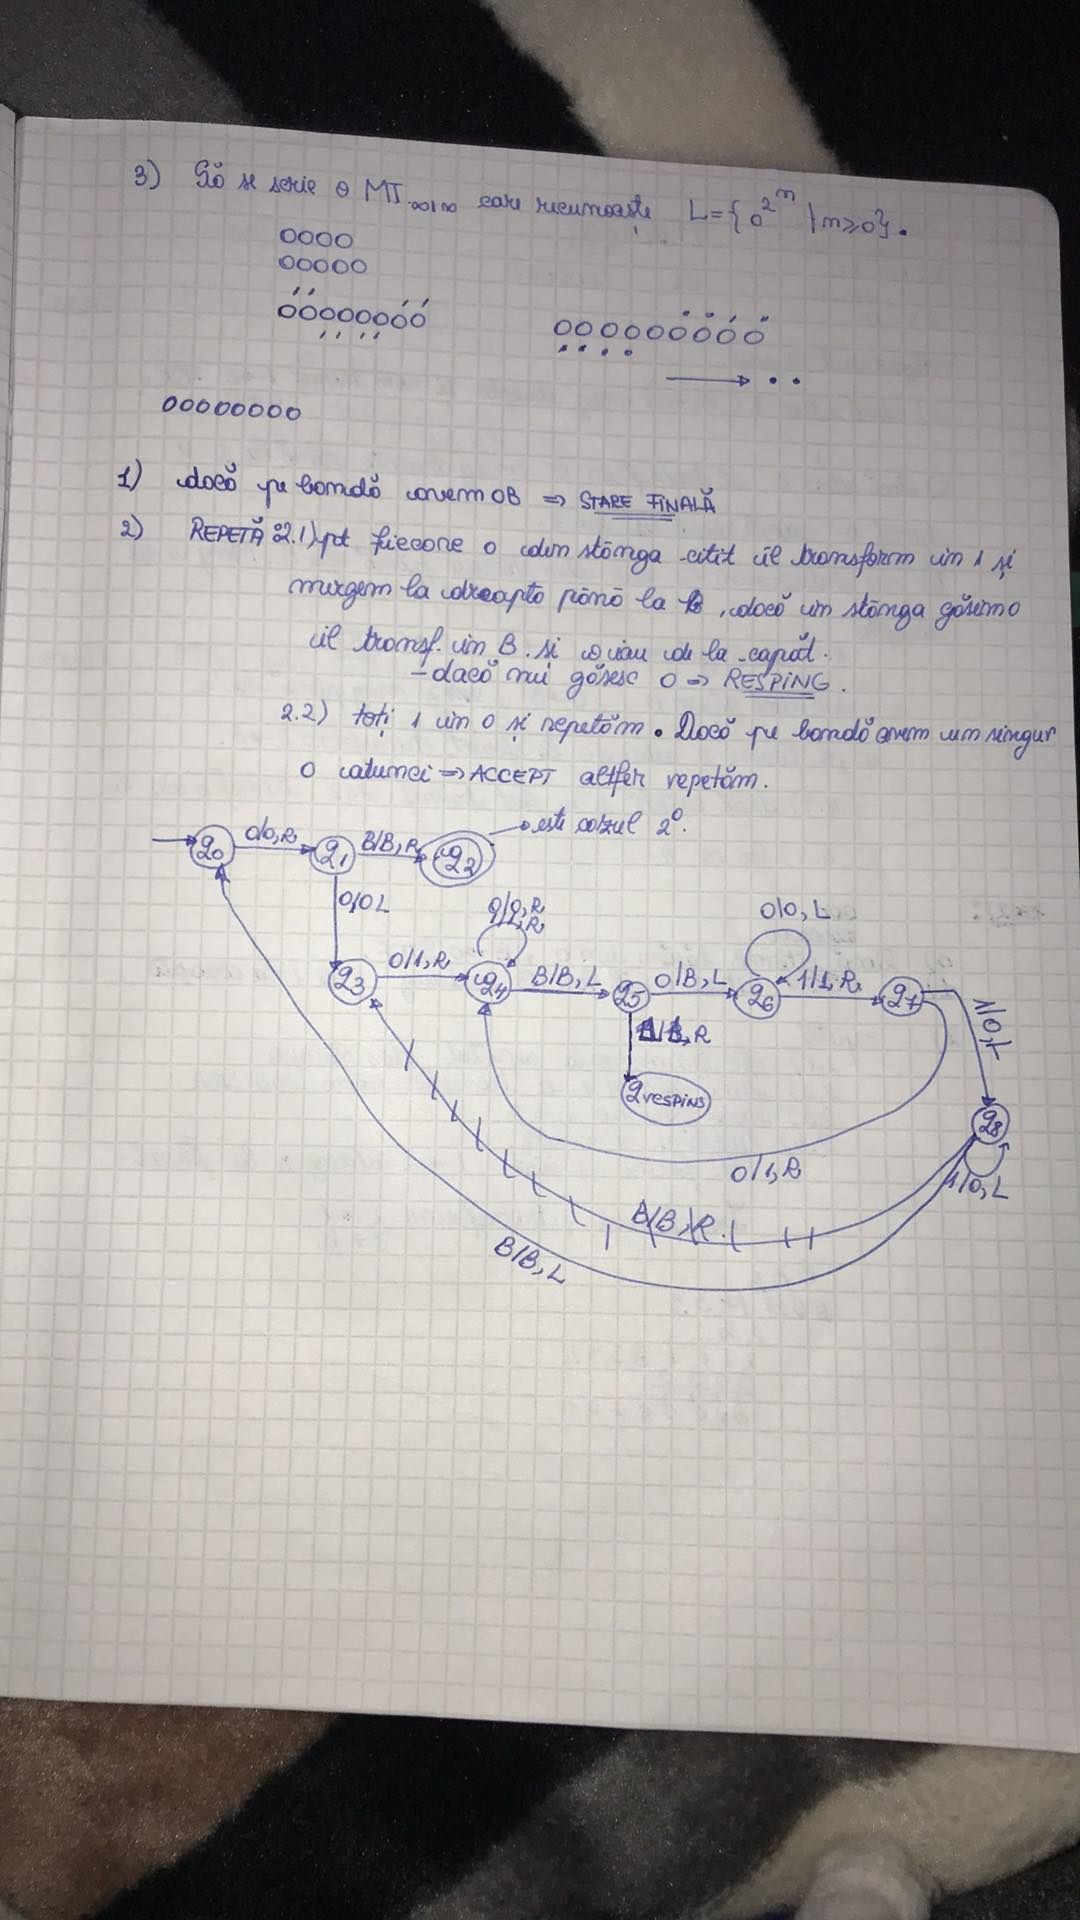 3) Să se scrie o MT∞|∞ care recunoaște L={0^2^n | n≥0}.
0000
00000
00000000
000000000
00000000
1) dacă pe bandă avem 0B ⇒ STARE FINALĂ
2) REPETĂ: 2.1) pt fiecare 0 din stânga citit îl transform în 1 și
mergem la dreapta până la B, dacă în stânga găsim 0
îl transf. în B. și o iau de la capăt.
-dacă nui găsesc 0 ⇒ RESPING.
2.2) toți 1 în 0 și repetăm. Dacă pe bandă avem un singur
0 atunci ⇒ ACCEPT altfel repetăm.
→ este cazul 2^0.
q0 0/0,R q1 B/B,R q2
0/0 L
0/0,R
1/1,R
0/0, L
q3 0/1,R q4 B/B,L q5 0/B,L q6 1/1,R q7
B/B,R
1/0,L
qrespins
q8
0/1,R
1/0,L
B/B,R
B/B,L